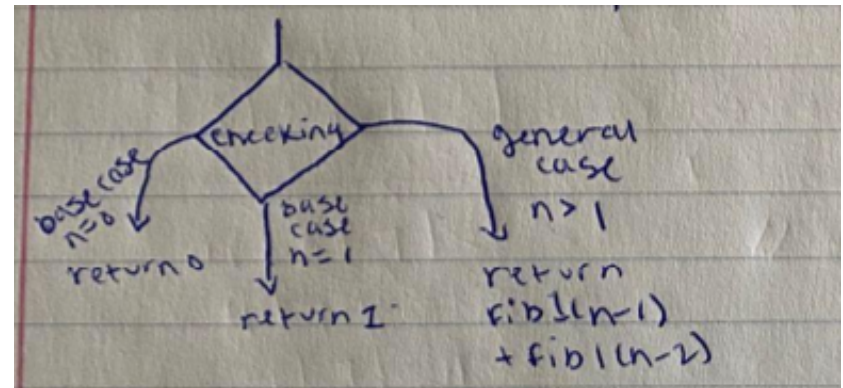 checking
base case
n=0
return 0
base
case
n=1
return 1
general
case
n>1
return
fib1(n-1)
+ fib1(n-2)